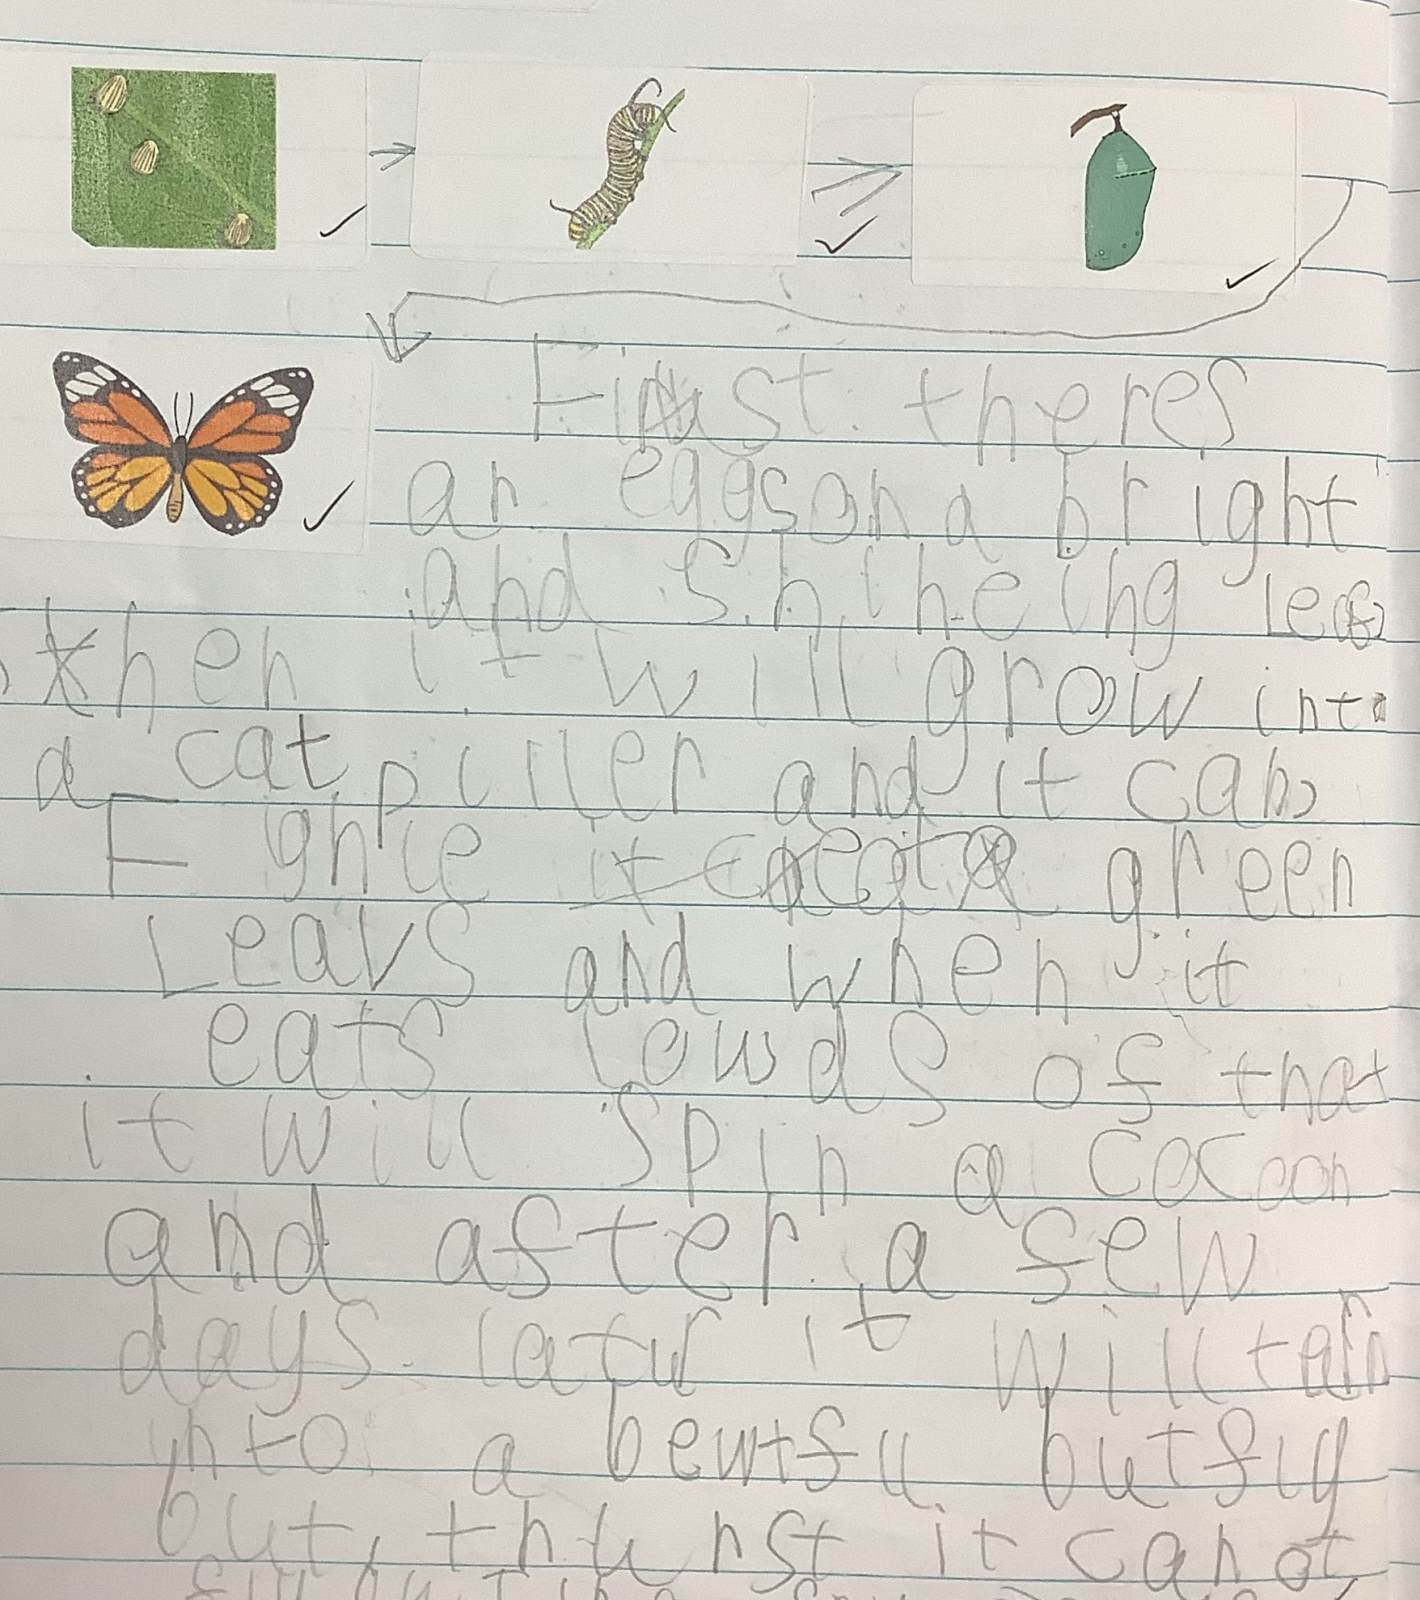 First theres
an eggs on a bright
and shineing leaf
then it will grow into
a catpiller and it can
green
Leavs and when it
eats lowds of that
it will spin a cocoon
and after a few
days latur it will
into a bewtfu butfly
but, it canot